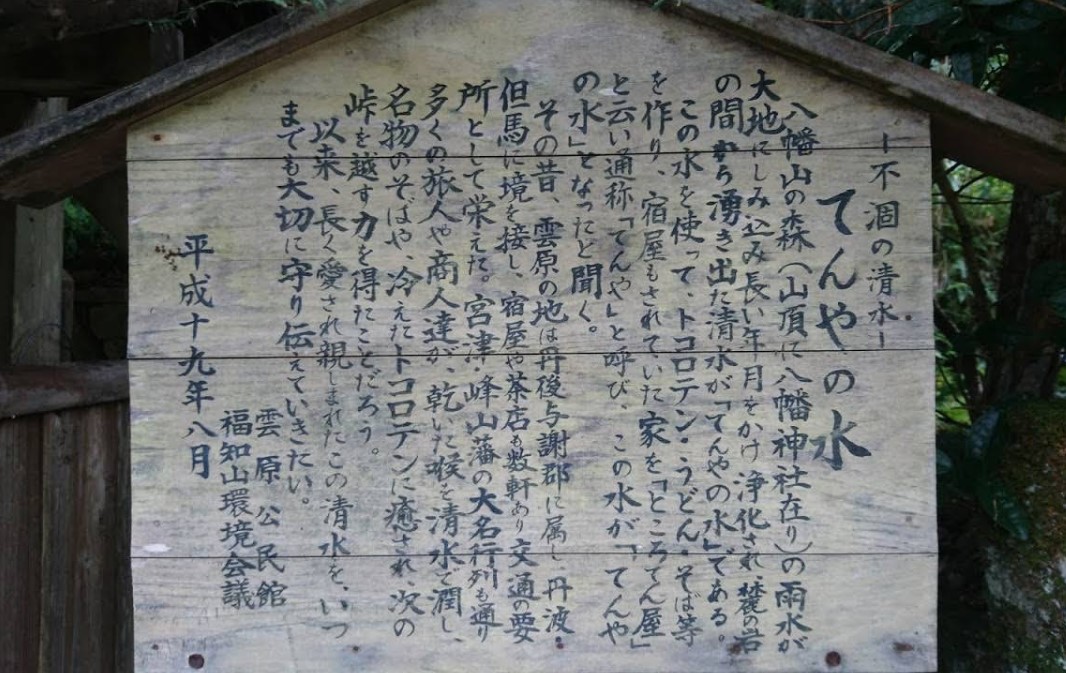 －不涸の清水－
てんやの水
八幡山の森（山頂に八幡神社在り）の雨水が
大地にしみ込み長い年月をかけ浄化され麓の岩
の間から湧き出た清水が「てんやの水」である。
この水を使って、トコロテン・うどん・そば等
を作り、宿屋もされていた家を「ところてん屋」
と云い通称「てんや」と呼び、この水が「てんや
の水」となったと聞く。
その昔、雲原の地は丹後与謝郡に属し、丹波・
但馬に境を接し、宿屋や茶店も数軒あり交通の要
所として栄えた。宮津・峰山藩の大名行列も通り
多くの旅人や商人達が、乾いた喉を清水で潤し、
名物のそばや、冷えたトコロテンに癒され、次の
峠を越す力を得たことだろう。
以来、長く愛され親しまれたこの清水を、いつ
までも大切に守り伝えていきたい。
雲原公民館
福知山環境会議
平成十九年八月